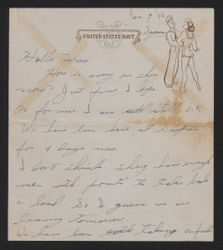 UNITED STATES NAVY
Jan 9 '46
Japan
Hello Mom,
How is every one
now? Just fine I hope
As for me I am still O.K.
We have been here at
for 4 days now
I don't think they have enough
men with points to take back
a load. So I guess we are
leaving tomorrow
We have been taking on